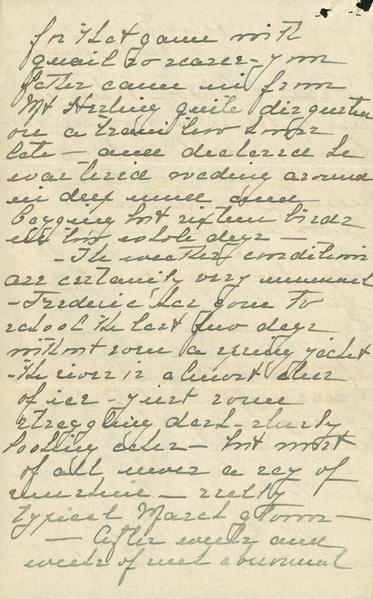 for that game with
quail so scarce - your
father came in from
Mt Sterling quite disgusted
on a train two hours
late - and declared he
was tired wading around
in deep mud and
bagging but sixteen birds
in two whole days -
- The weather conditions
are certainly very unusual
- Frederic has gone to
school the last few days
without even a spring jacket
- The river is almost clear
of ice - just some
straggling dark - slushy
looking cakes - but most
of all never a ray of
sunshine - really
typical March gloom -
- After weeks and
weeks of most abnormal